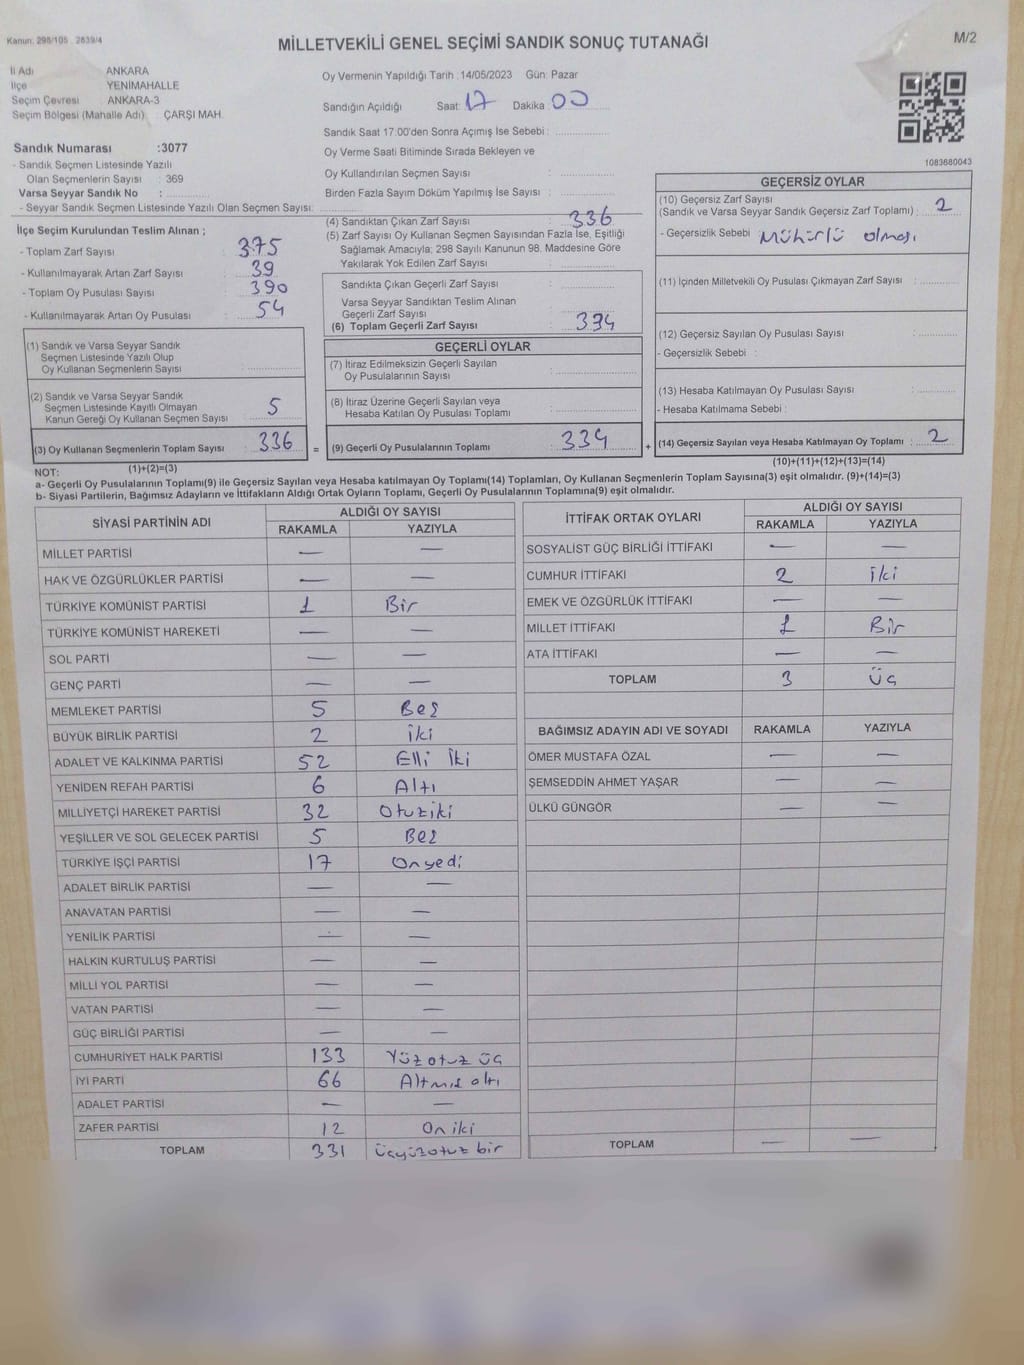 Kanun: 298/105 2839/4
MİLLETVEKİLİ GENEL SEÇİMİ SANDIK SONUÇ TUTANAĞI
M/2
İl Adı ANKARA
İlçe YENİMAHALLE
Seçim Çevresi ANKARA-3
Seçim Bölgesi (Mahalle Adı) : ÇARŞI MAH.
Sandık Numarası :3077
- Sandık Seçmen Listesinde Yazılı
Olan Seçmenlerin Sayısı : 369
Varsa Seyyar Sandık No :
- Seyyar Sandık Seçmen Listesinde Yazılı Olan Seçmen Sayısı:
Oy Vermenin Yapıldığı Tarih :14/05/2023 Gün: Pazar
Sandığın Açıldığı Saat: 17 Dakika: 00
Sandık Saat 17.00'den Sonra Açımış İse Sebebi :
Oy Verme Saati Bitiminde Sırada Bekleyen ve
Oy Kullandırılan Seçmen Sayısı :
Birden Fazla Sayım Döküm Yapılmış İse Sayısı :
1083680043
İlçe Seçim Kurulundan Teslim Alınan ;
- Toplam Zarf Sayısı : 375
- Kullanılmayarak Artan Zarf Sayısı : 39
- Toplam Oy Pusulası Sayısı : 390
- Kullanılmayarak Artan Oy Pusulası : 54
(1) Sandık ve Varsa Seyyar Sandık
Seçmen Listesinde Yazılı Olup
Oy Kullanan Seçmenlerin Sayısı :
(2) Sandık ve Varsa Seyyar Sandık
Seçmen Listesinde Kayıtlı Olmayan
Kanun Gereği Oy Kullanan Seçmen Sayısı : 5
(3) Oy Kullanan Seçmenlerin Toplam Sayısı : 336 =
(1)+(2)=(3)
(4) Sandıktan Çıkan Zarf Sayısı : 336
(5) Zarf Sayısı Oy Kullanan Seçmen Sayısından Fazla İse, Eşitliği
Sağlamak Amacıyla; 298 Sayılı Kanunun 98. Maddesine Göre
Yakılarak Yok Edilen Zarf Sayısı :
Sandıkta Çıkan Geçerli Zarf Sayısı :
Varsa Seyyar Sandıktan Teslim Alınan
Geçerli Zarf Sayısı :
(6) Toplam Geçerli Zarf Sayısı : 334
GEÇERLİ OYLAR
(7) İtiraz Edilmeksizin Geçerli Sayılan
Oy Pusulalarının Sayısı :
(8) İtiraz Üzerine Geçerli Sayılan veya
Hesaba Katılan Oy Pusulası Toplamı :
(9) Geçerli Oy Pusulalarının Toplamı : 334 +
GEÇERSİZ OYLAR
(10) Geçersiz Zarf Sayısı
(Sandık ve Varsa Seyyar Sandık Geçersiz Zarf Toplamı) : 2
- Geçersizlik Sebebi : Mühürlü olması
(11) İçinden Milletvekili Oy Pusulası Çıkmayan Zarf Sayısı :
(12) Geçersiz Sayılan Oy Pusulası Sayısı :
- Geçersizlik Sebebi :
(13) Hesaba Katılmayan Oy Pusulası Sayısı :
- Hesaba Katılmama Sebebi :
(14) Geçersiz Sayılan veya Hesaba Katılmayan Oy Toplamı : 2
(10)+(11)+(12)+(13)=(14)
NOT:
a- Geçerli Oy Pusulalarının Toplamı(9) ile Geçersiz Sayılan veya Hesaba katılmayan Oy Toplamı(14) Toplamları, Oy Kullanan Seçmenlerin Toplam Sayısına(3) eşit olmalıdır. (9)+(14)=(3)
b- Siyasi Partilerin, Bağımsız Adayların ve İttifakların Aldığı Ortak Oyların Toplamı, Geçerli Oy Pusulalarının Toplamına(9) eşit olmalıdır.
SİYASİ PARTİNİN ADI ALDIĞI OY SAYISI
RAKAMLA YAZIYLA
MİLLET PARTİSİ — —
HAK VE ÖZGÜRLÜKLER PARTİSİ — —
TÜRKİYE KOMÜNİST PARTİSİ 1 Bir
TÜRKİYE KOMÜNİST HAREKETİ — —
SOL PARTİ — —
GENÇ PARTİ — —
MEMLEKET PARTİSİ 5 Beş
BÜYÜK BİRLİK PARTİSİ 2 İki
ADALET VE KALKINMA PARTİSİ 52 Elli İki
YENİDEN REFAH PARTİSİ 6 Altı
MİLLİYETÇİ HAREKET PARTİSİ 32 Otuziki
YEŞİLLER VE SOL GELECEK PARTİSİ 5 Beş
TÜRKİYE İŞÇİ PARTİSİ 17 Onyedi
ADALET BİRLİK PARTİSİ — —
ANAVATAN PARTİSİ — —
YENİLİK PARTİSİ — —
HALKIN KURTULUŞ PARTİSİ — —
MİLLİ YOL PARTİSİ — —
VATAN PARTİSİ — —
GÜÇ BİRLİĞİ PARTİSİ — —
CUMHURİYET HALK PARTİSİ 133 Yüzotuz üç
İYİ PARTİ 66 Altmış altı
ADALET PARTİSİ — —
ZAFER PARTİSİ 12 On iki
TOPLAM 331 üçyüzotuz bir
İTTİFAK ORTAK OYLARI ALDIĞI OY SAYISI
RAKAMLA YAZIYLA
SOSYALİST GÜÇ BİRLİĞİ İTTİFAKI — —
CUMHUR İTTİFAKI 2 İki
EMEK VE ÖZGÜRLÜK İTTİFAKI — —
MİLLET İTTİFAKI 1 Bir
ATA İTTİFAKI — —
TOPLAM 3 Üç
BAĞIMSIZ ADAYIN ADI VE SOYADI RAKAMLA YAZIYLA
ÖMER MUSTAFA ÖZAL — —
ŞEMSEDDİN AHMET YAŞAR — —
ÜLKÜ GÜNGÖR — —
TOPLAM — —